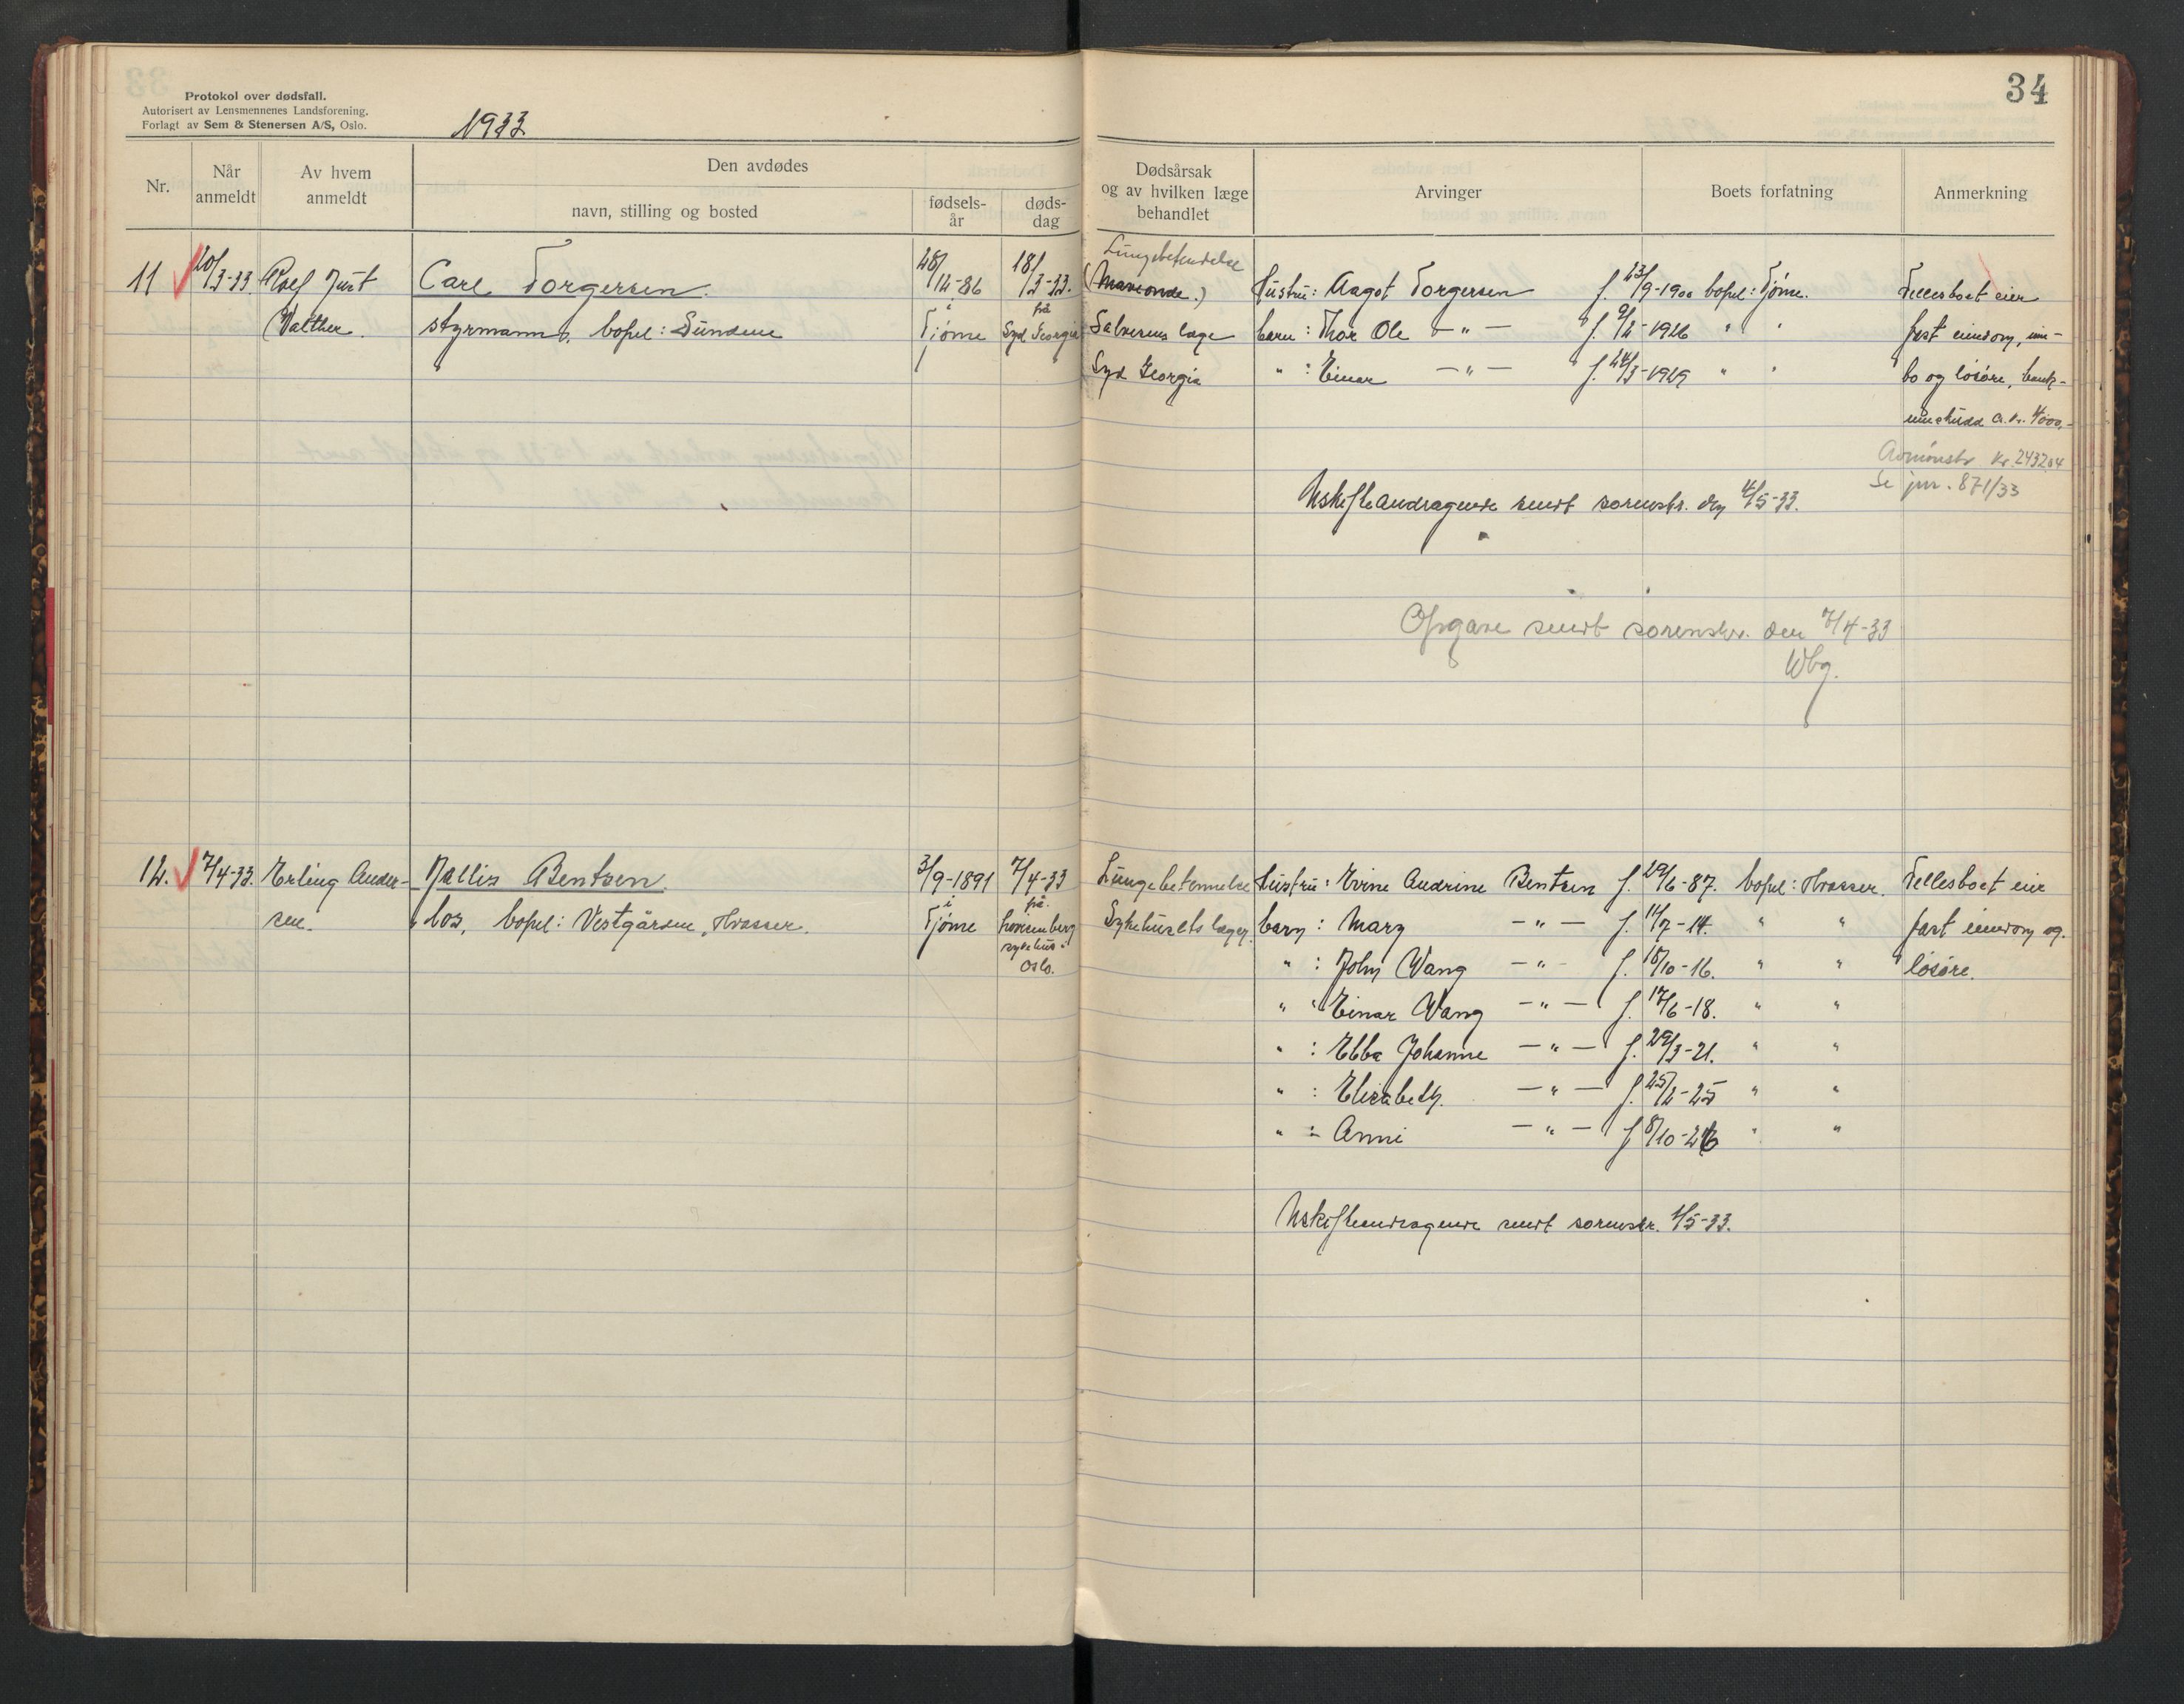 Protokol over dødsfall.
Autorisert av Lensmennenes Landsforening.
Forlagt av Sem & Stenersen A/S, Oslo.
1933
34
Nr.
Når anmeldt
Av hvem anmeldt
Den avdødes
navn, stilling og bosted
fødsels-år
døds-dag
Dødsårsak og av hvilken læge behandlet
Arvinger
Boets forfatning
Anmerkning
11 20/3-33. Rolf Just Carl Torgersen. 28/12-86 18/3-33. Lungebetendelse
Walther. styrmann, bopel: Sundene i Tjøme på Syd Georgia
Salvesens læge
Syd Georgia
Hustru: Aagot Torgersen f. 23/9-1900 bopel: Tjøme.
barn: Thor Ole —"— f. 9/2-1926 " "
" : Einar —"— f. 24/3-1929 " "
Fellesboet eier
fast eiendom, inn-
bo og løsøre, bank-
innskudd a. kr. 4000,-
Kr. 2432,04
Se jnr. 871/33
Uskifteandragende sendt sorenskr. den 4/5-33.
Opgave sendt sorenskr. den 7/4-33
Wbg.
12. 7/4-33. Erling Ander- Nallis Bentzen. 3/9-1891 7/4-33 Lungebetennelse
sen. los, bopel: Vestgården, Hvasser. i Tjøme på Lovisenberg sykehus Oslo. Sykehusets læger.
Hustru: Evine Andrine Bentzen f. 29/6-87. bopel: Hvasser.
barn: Mary —"— f. 14/7-14. " "
" : John Wang —"— f. 18/10-16. " "
" : Einar Wang —"— f. 17/6-18. " "
" : Ebba Johanne —"— f. 29/3-21. " "
" : Elisabeth —"— f. 25/2-25 " "
" : Anni —"— f. 8/10-26 " "
Fellesboet eier
fast eiendom og
løsøre.
Uskifteandragende sendt sorenskr. 4/5-33.